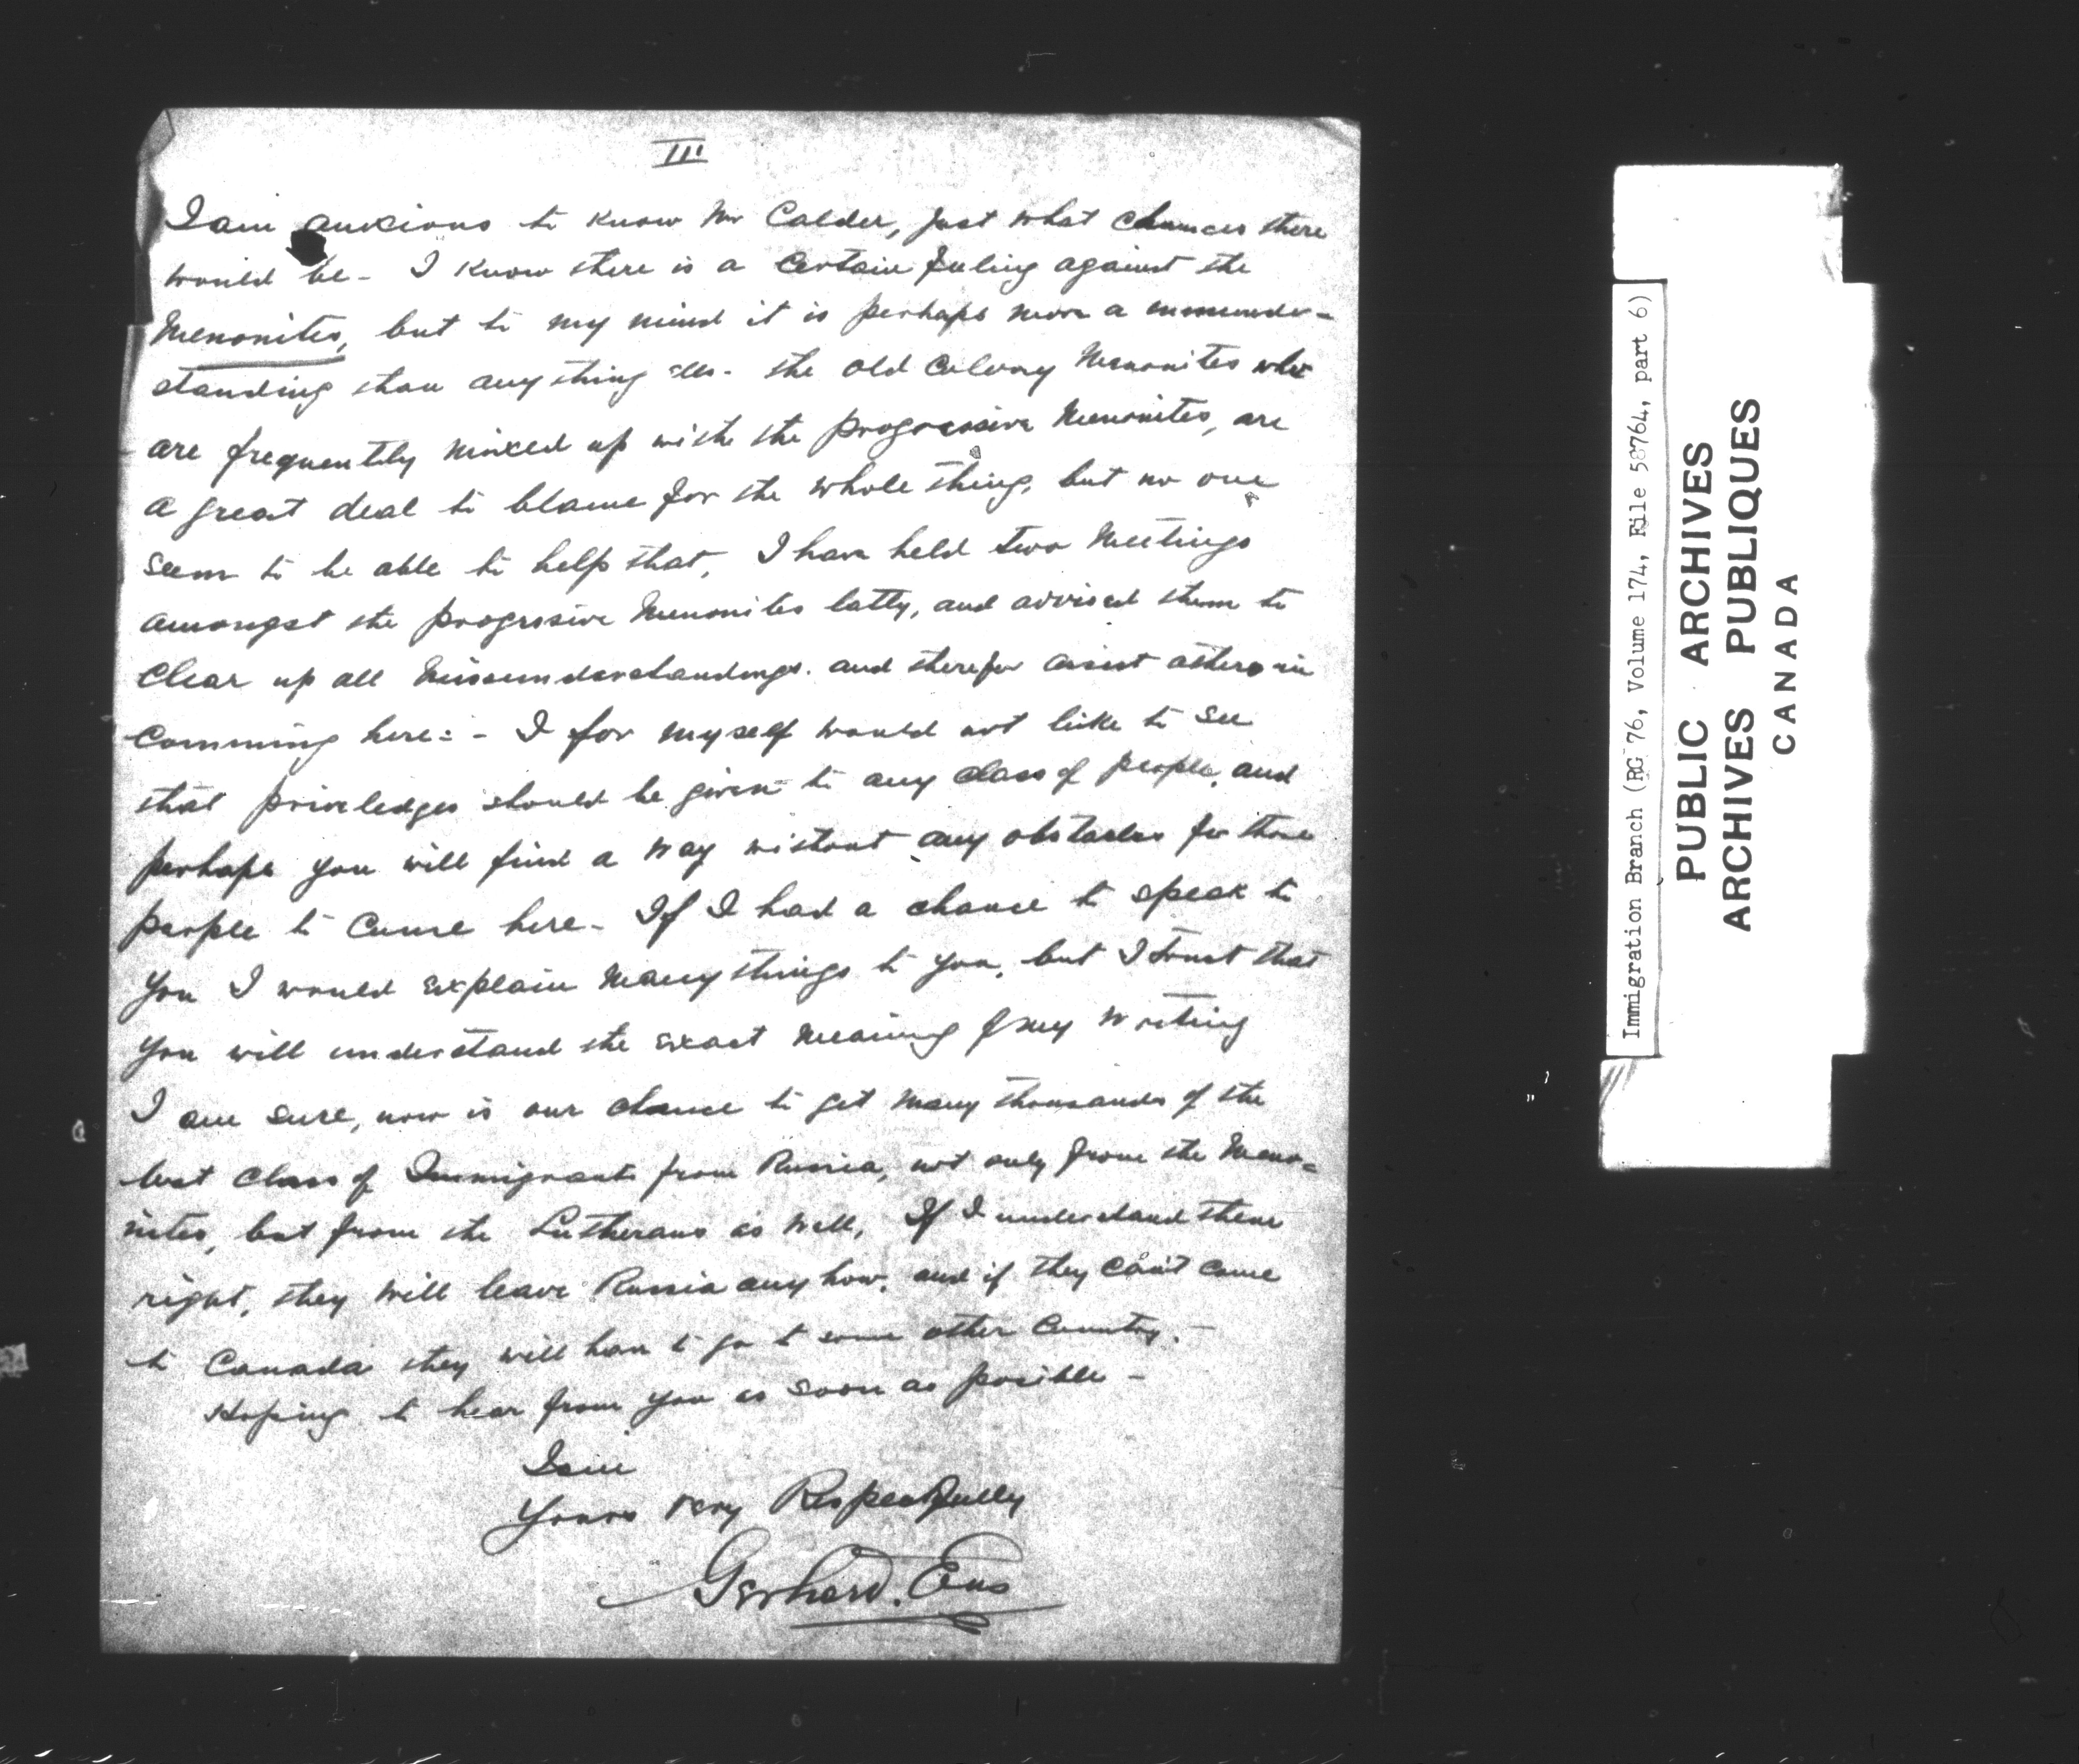 III
I am anxcious to know Mr Calder, just what chances there
would be - I know there is a certain feeling against the
Menonites, but to my mind it is perhaps more a missunder-
standing than any thing els. the old Colony Menonites who
are frequently mixed up with the progressive Menonites, are
a great deal to blame for the whole thing, but no one
seem to be able to help that, I have held two Meetings
amongst the progrosive Menonites latty, and advised them to
clear up all Missunderstandings. and therefor assist others in
comming here:- I for myself would not like to see
that priveledges should be given to any class of people, and
perhaps you will find a way without any obstacles for those
people to come here - If I had a chance to speak to
you I would explain Many things to you, but I trust that
you will understand the exact Meaning of my writing
I am sure, now is our chance to get many thousands of the
best class of Immigrants from Russia, not only from the Meno-
nites, but from the Lutherans as well, If I understand them
right, they will leave Russia any how, and if they can't come
to Canada they will have to go to some other Country. -
Hoping to hear from you as soon as posible -
I am
Yours Very Respectfully
Gerhard. Ens
Immigration Branch (RG 76, Volume 174, File 58764, part 6)
PUBLIC ARCHIVES
ARCHIVES PUBLIQUES
CANADA